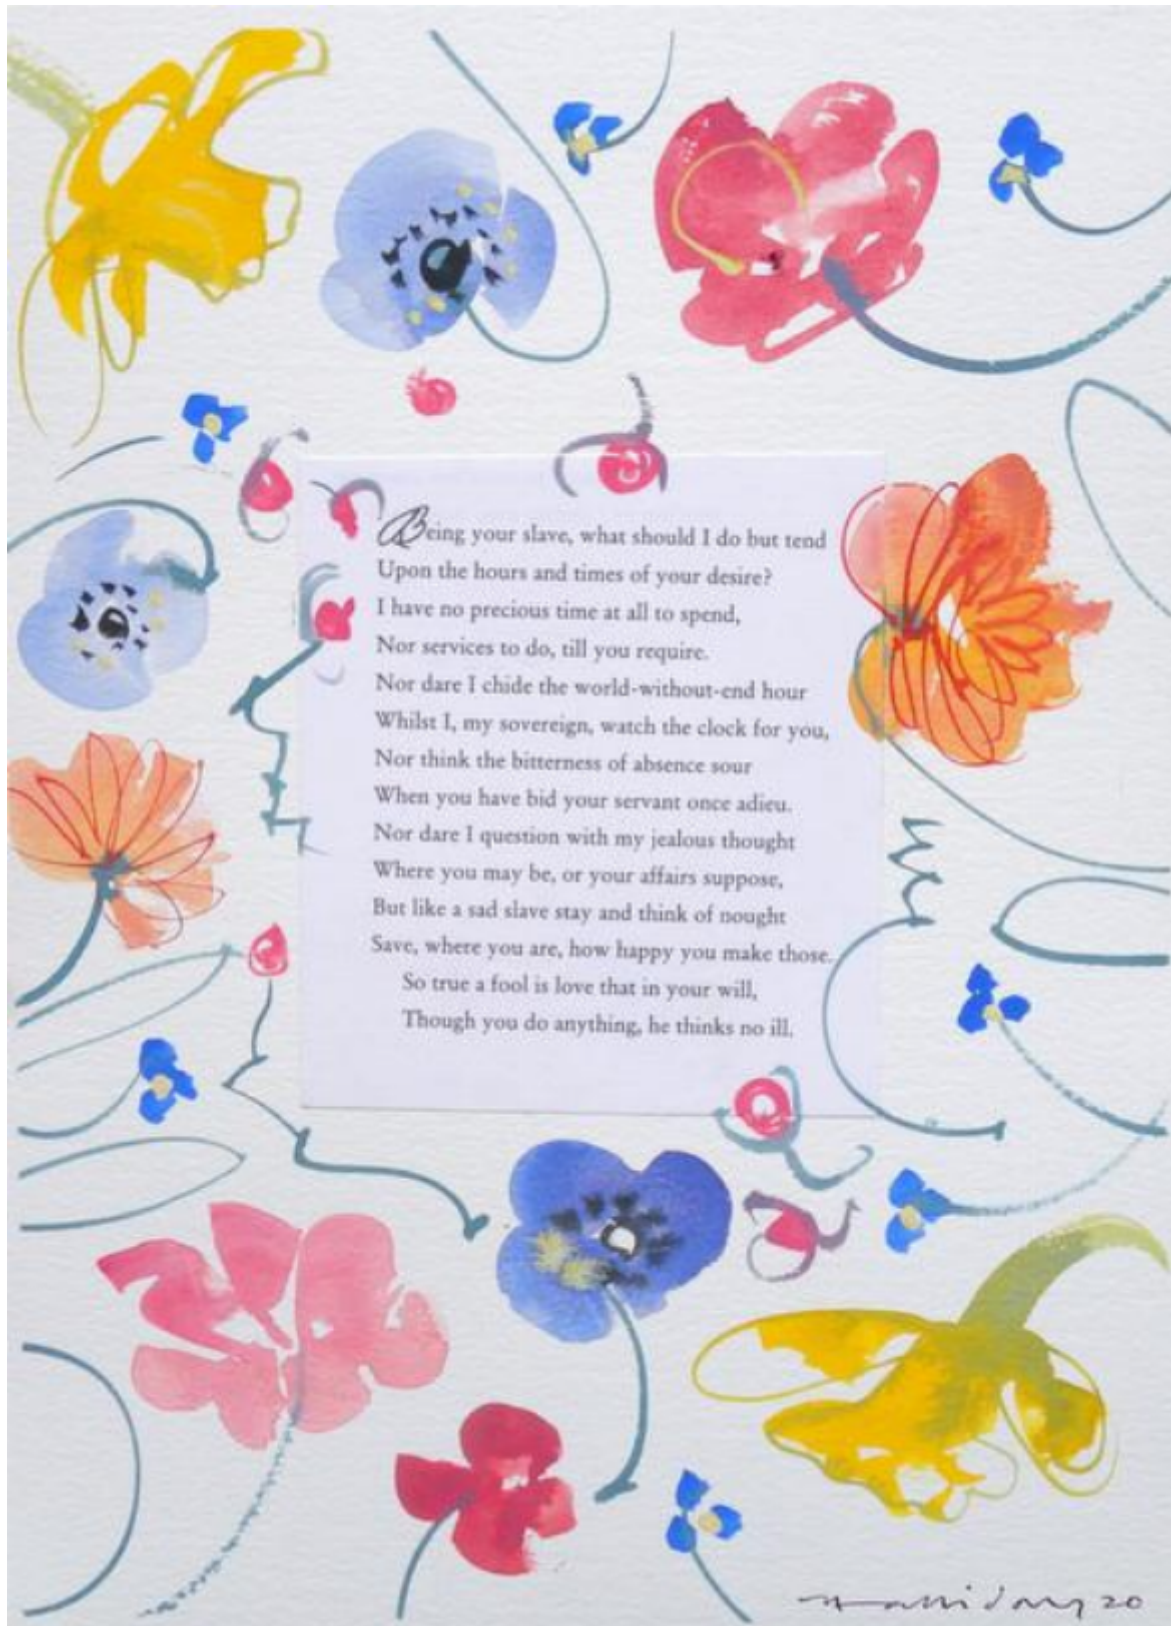 Being your slave, what should I do but tend
Upon the hours and times of your desire?
I have no precious time at all to spend,
Nor services to do, till you require.
Nor dare I chide the world-without-end hour
Whilst I, my sovereign, watch the clock for you,
Nor think the bitterness of absence sour
When you have bid your servant once adieu.
Nor dare I question with my jealous thought
Where you may be, or your affairs suppose,
But like a sad slave stay and think of nought
Save, where you are, how happy you make those.
So true a fool is love that in your will,
Though you do anything, he thinks no ill.
20